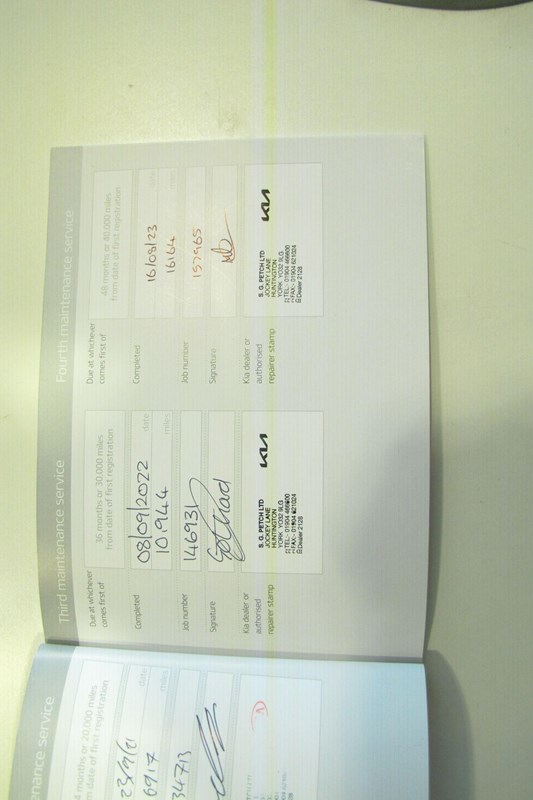 nance service
4 months or 20,000 miles
m date of first registration
23/9/21
date
6917
miles
34713
Third maintenance service
Due at whichever
comes first of
36 months or 30,000 miles
from date of first registration
Completed
08/09/2022
date
10,944
miles
Job number
146931
Signature
Kia dealer or
authorised
repairer stamp
S. G. PETCH LTD
JOCKEY LANE
HUNTINGTON
YORK YO32 9LG
TEL:- 01904 486600
FAX:- 01904 621024
Dealer 2128
KIA
Fourth maintenance service
Due at whichever
comes first of
48 months or 40,000 miles
from date of first registration
Completed
16/08/23
date
16164
miles
Job number
157965
Signature
Kia dealer or
authorised
repairer stamp
S. G. PETCH LTD
JOCKEY LANE
HUNTINGTON
YORK YO32 9LG
TEL:- 01904 486600
FAX:- 01904 621024
Dealer 2128
KIA